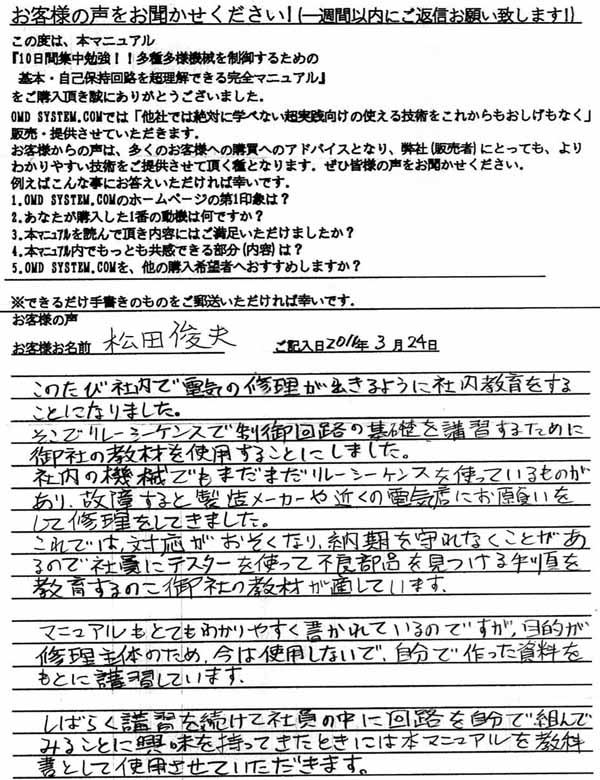 お客様の声をお聞かせください！(一週間以内にご返信お願い致します！)
この度は、本マニュアル
『10日間集中勉強！！多種多様機械を制御するための
基本・自己保持回路を超理解できる完全マニュアル』
をご購入頂き誠にありがとうございました。
OMD SYSTEM.COMでは「他社では絶対に学べない超実践向けの使える技術をこれからもおしげもなく」
販売・提供させていただきます。
お客様からの声は、多くのお客様への購買へのアドバイスとなり、弊社(販売者)にとっても、より
わかりやすい技術をご提供させて頂く種となります。ぜひ皆様の声をお聞かせください。
例えばこんな事にお答えいただければ幸いです。
1.OMD SYSTEM.COMのホームページの第1印象は？
2.あなたが購入した1番の動機は何ですか？
3.本マニュアルを読んで頂き内容にはご満足いただけましたか？
4.本マニュアル内でもっとも共感できる部分(内容)は？
5.OMD SYSTEM.COMを、他の購入希望者へおすすめしますか？
※できるだけ手書きのものをご郵送いただければ幸いです。
お客様の声
お客様お名前 松田俊夫 ご記入日2011年3月24日
このたび社内で電気の修理が出きるように社内教育をする
ことになりました。
そこでリレーシーケンスで制御回路の基礎を講習するために
御社の教材を使用することにしました。
社内の機械でもまだまだリレーシーケンスを使っているものが
あり、故障すると製造メーカーや近くの電気店にお願いを
して修理をしてきました。
これでは、対応がおそくなり、納期を守れなくことがあ
るので社員にテスターを使って不良部品を見つける手順を
教育するのに御社の教材が適しています。
マニュアルもとてもわかりやすく書かれているのですが、目的が
修理主体のため、今は使用しないで、自分で作った資料を
もとに講習しています。
しばらく講習を続けて社員の中に回路を自分で組んで
みることに興味を持ってきたときには本マニュアルを教科
書として使用させていただきます。